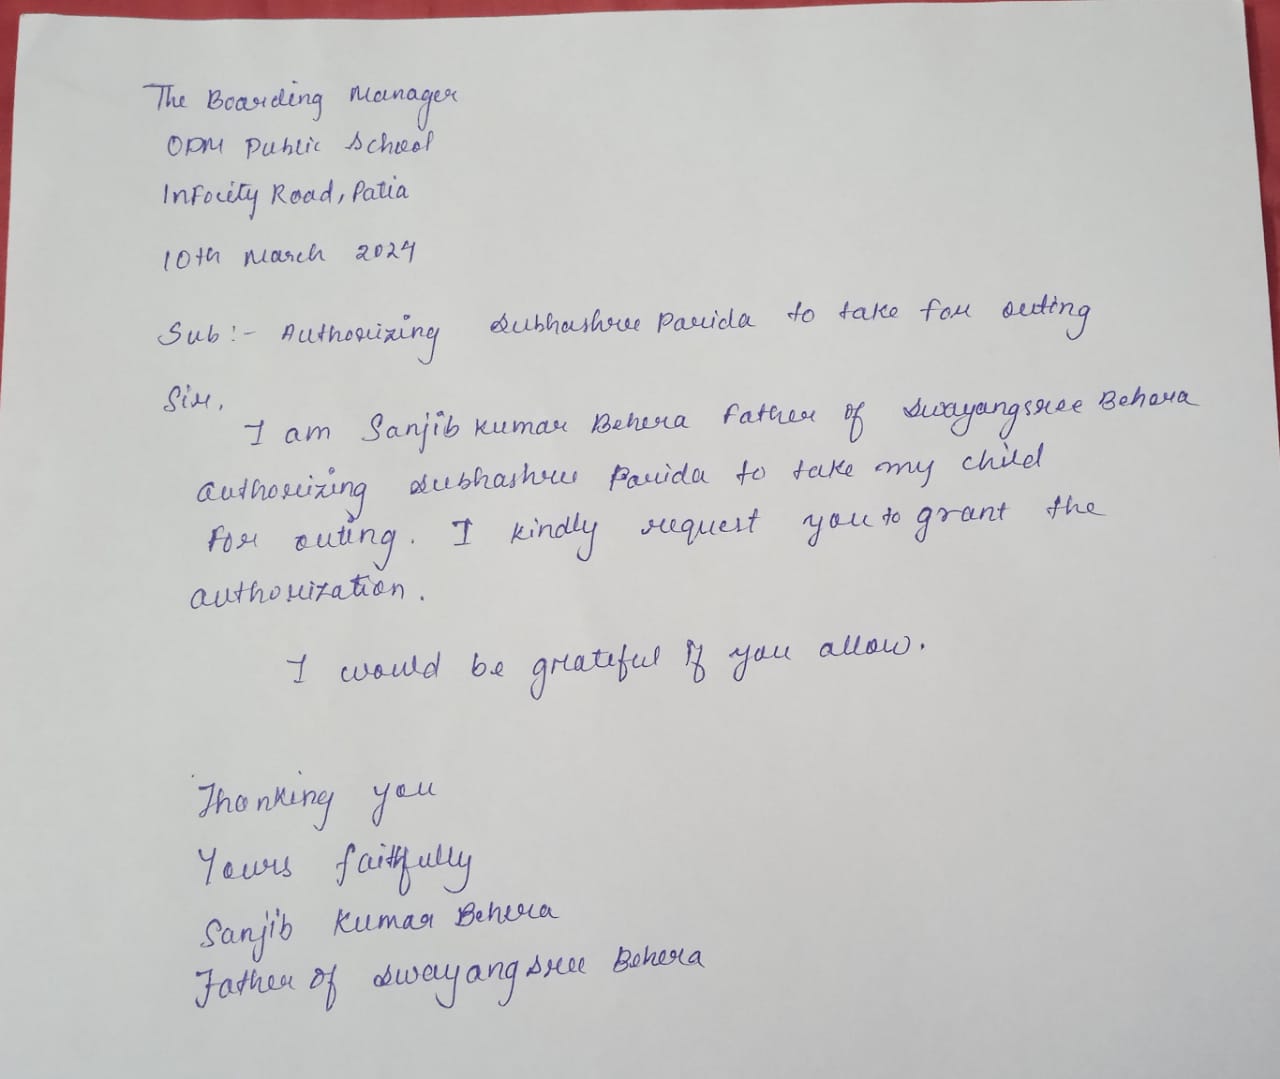 The Boarding Manager
ODM Public School
Infocity Road, Patia
10th March 2024
Sub:- Authorizing Subhashree Parida to take for outing
Sir,
I am Sanjib Kumar Behera Father of Swayangsree Behera
authorizing Subhashree Parida to take my child
for outing. I kindly request you to grant the
authorization.
I would be grateful if you allow.
Thanking you
Yours faithfully
Sanjib Kumar Behera
Father of Swayangsree Behera